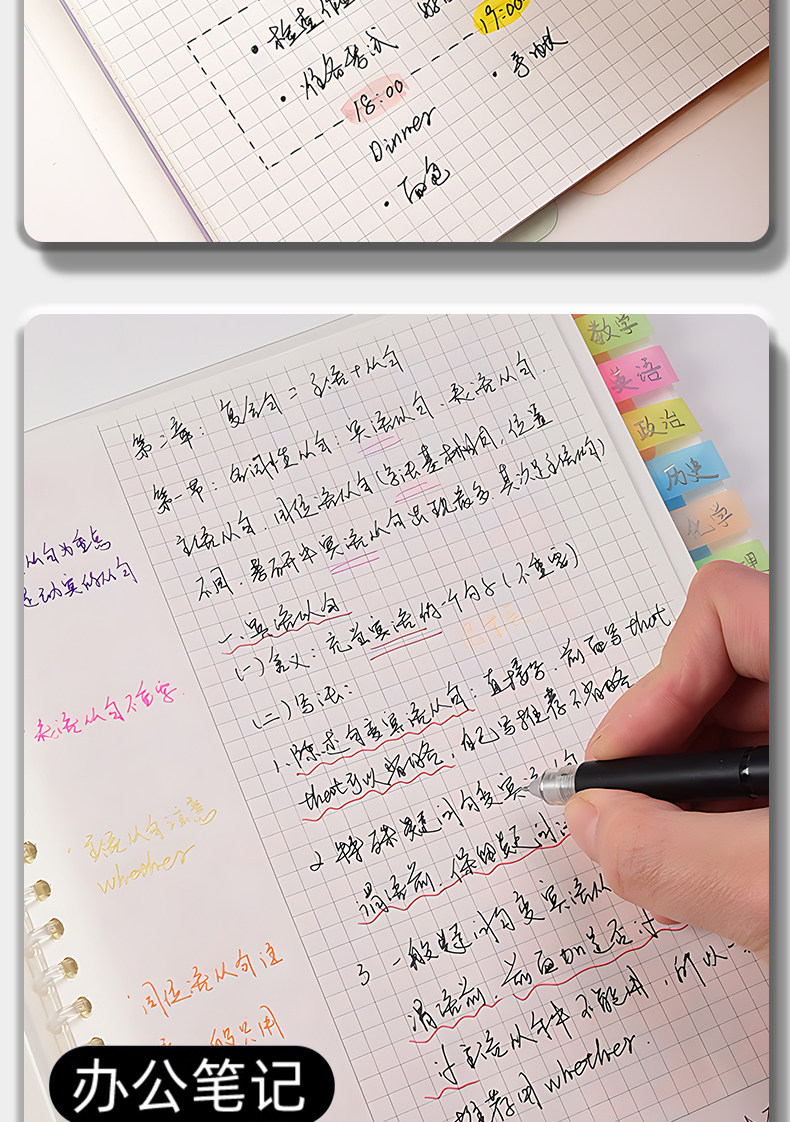 19:00
准备考试
18:00
Dinner
面包
数学
英语
政治
历史
化学
理
第二章：复合句 = 主语+从句
第一节：名词性从句：宾语从句、表语从句、
主语从句、同位语从句(写法基本相同，位置
不同，考研中宾语从句出现最多，其次是主语从句)
从句为重点
一、宾语从句
(一)含义：充当宾语的一个句子(不重要)
(二)写法：
表语从句不重要.
1.陈述句变宾语从句：直接写，前面写that
that可以省略，自己写推荐不省略
2 特殊疑问句变宾语从句
谓语前，保留疑问
主语从句注意
whether
3 一般疑问句变宾语从
谓语前，前面加是否
同位语从句注
主语从句中不能用，所以
只用
推荐用 whether.
办公笔记